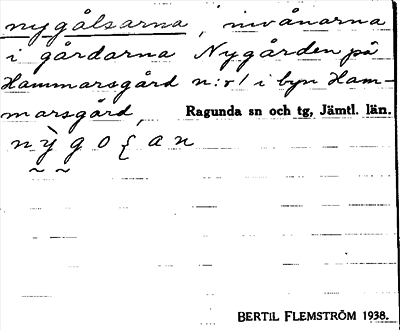 nygålsarna, invånarna
i gårdarna Nygården på
Hammarsgård n:r 1 i byn Ham-
marsgård, Ragunda sn och tg, Jämtl. län.
BERTIL FLEMSTRÖM 1938.